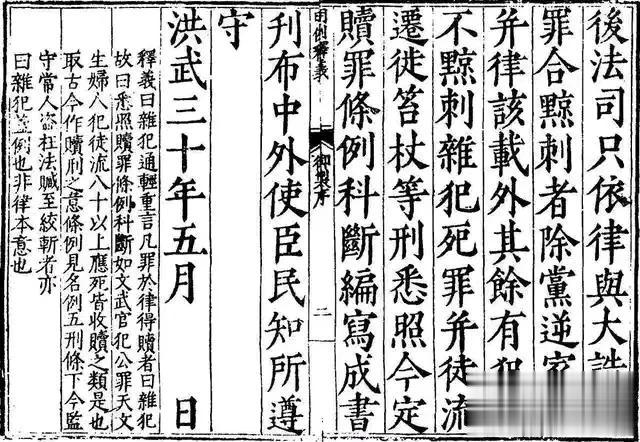 後法司只依律與大誥
罪合黥刺者除黨逆家
并律該載外其餘有犯
不黥刺雜犯死罪并徒流
遷徙笞杖等刑悉照今定
贖罪條例科斷編寫成書
釋義 御製序 二
刋布中外使臣民知所遵
守
洪武三十年五月 日
釋義曰雜犯通輕重言凡罪於律得贖者曰雜犯
故曰悉照贖罪條例科斷如文武官犯公罪天文
生婦人犯徒流八十以上應死皆收贖之類是也
取古今作贖刑之意條例見名例五刑條下今監
守常人盜枉法贓至絞斬者亦
曰雜犯蓋例也非律本意也